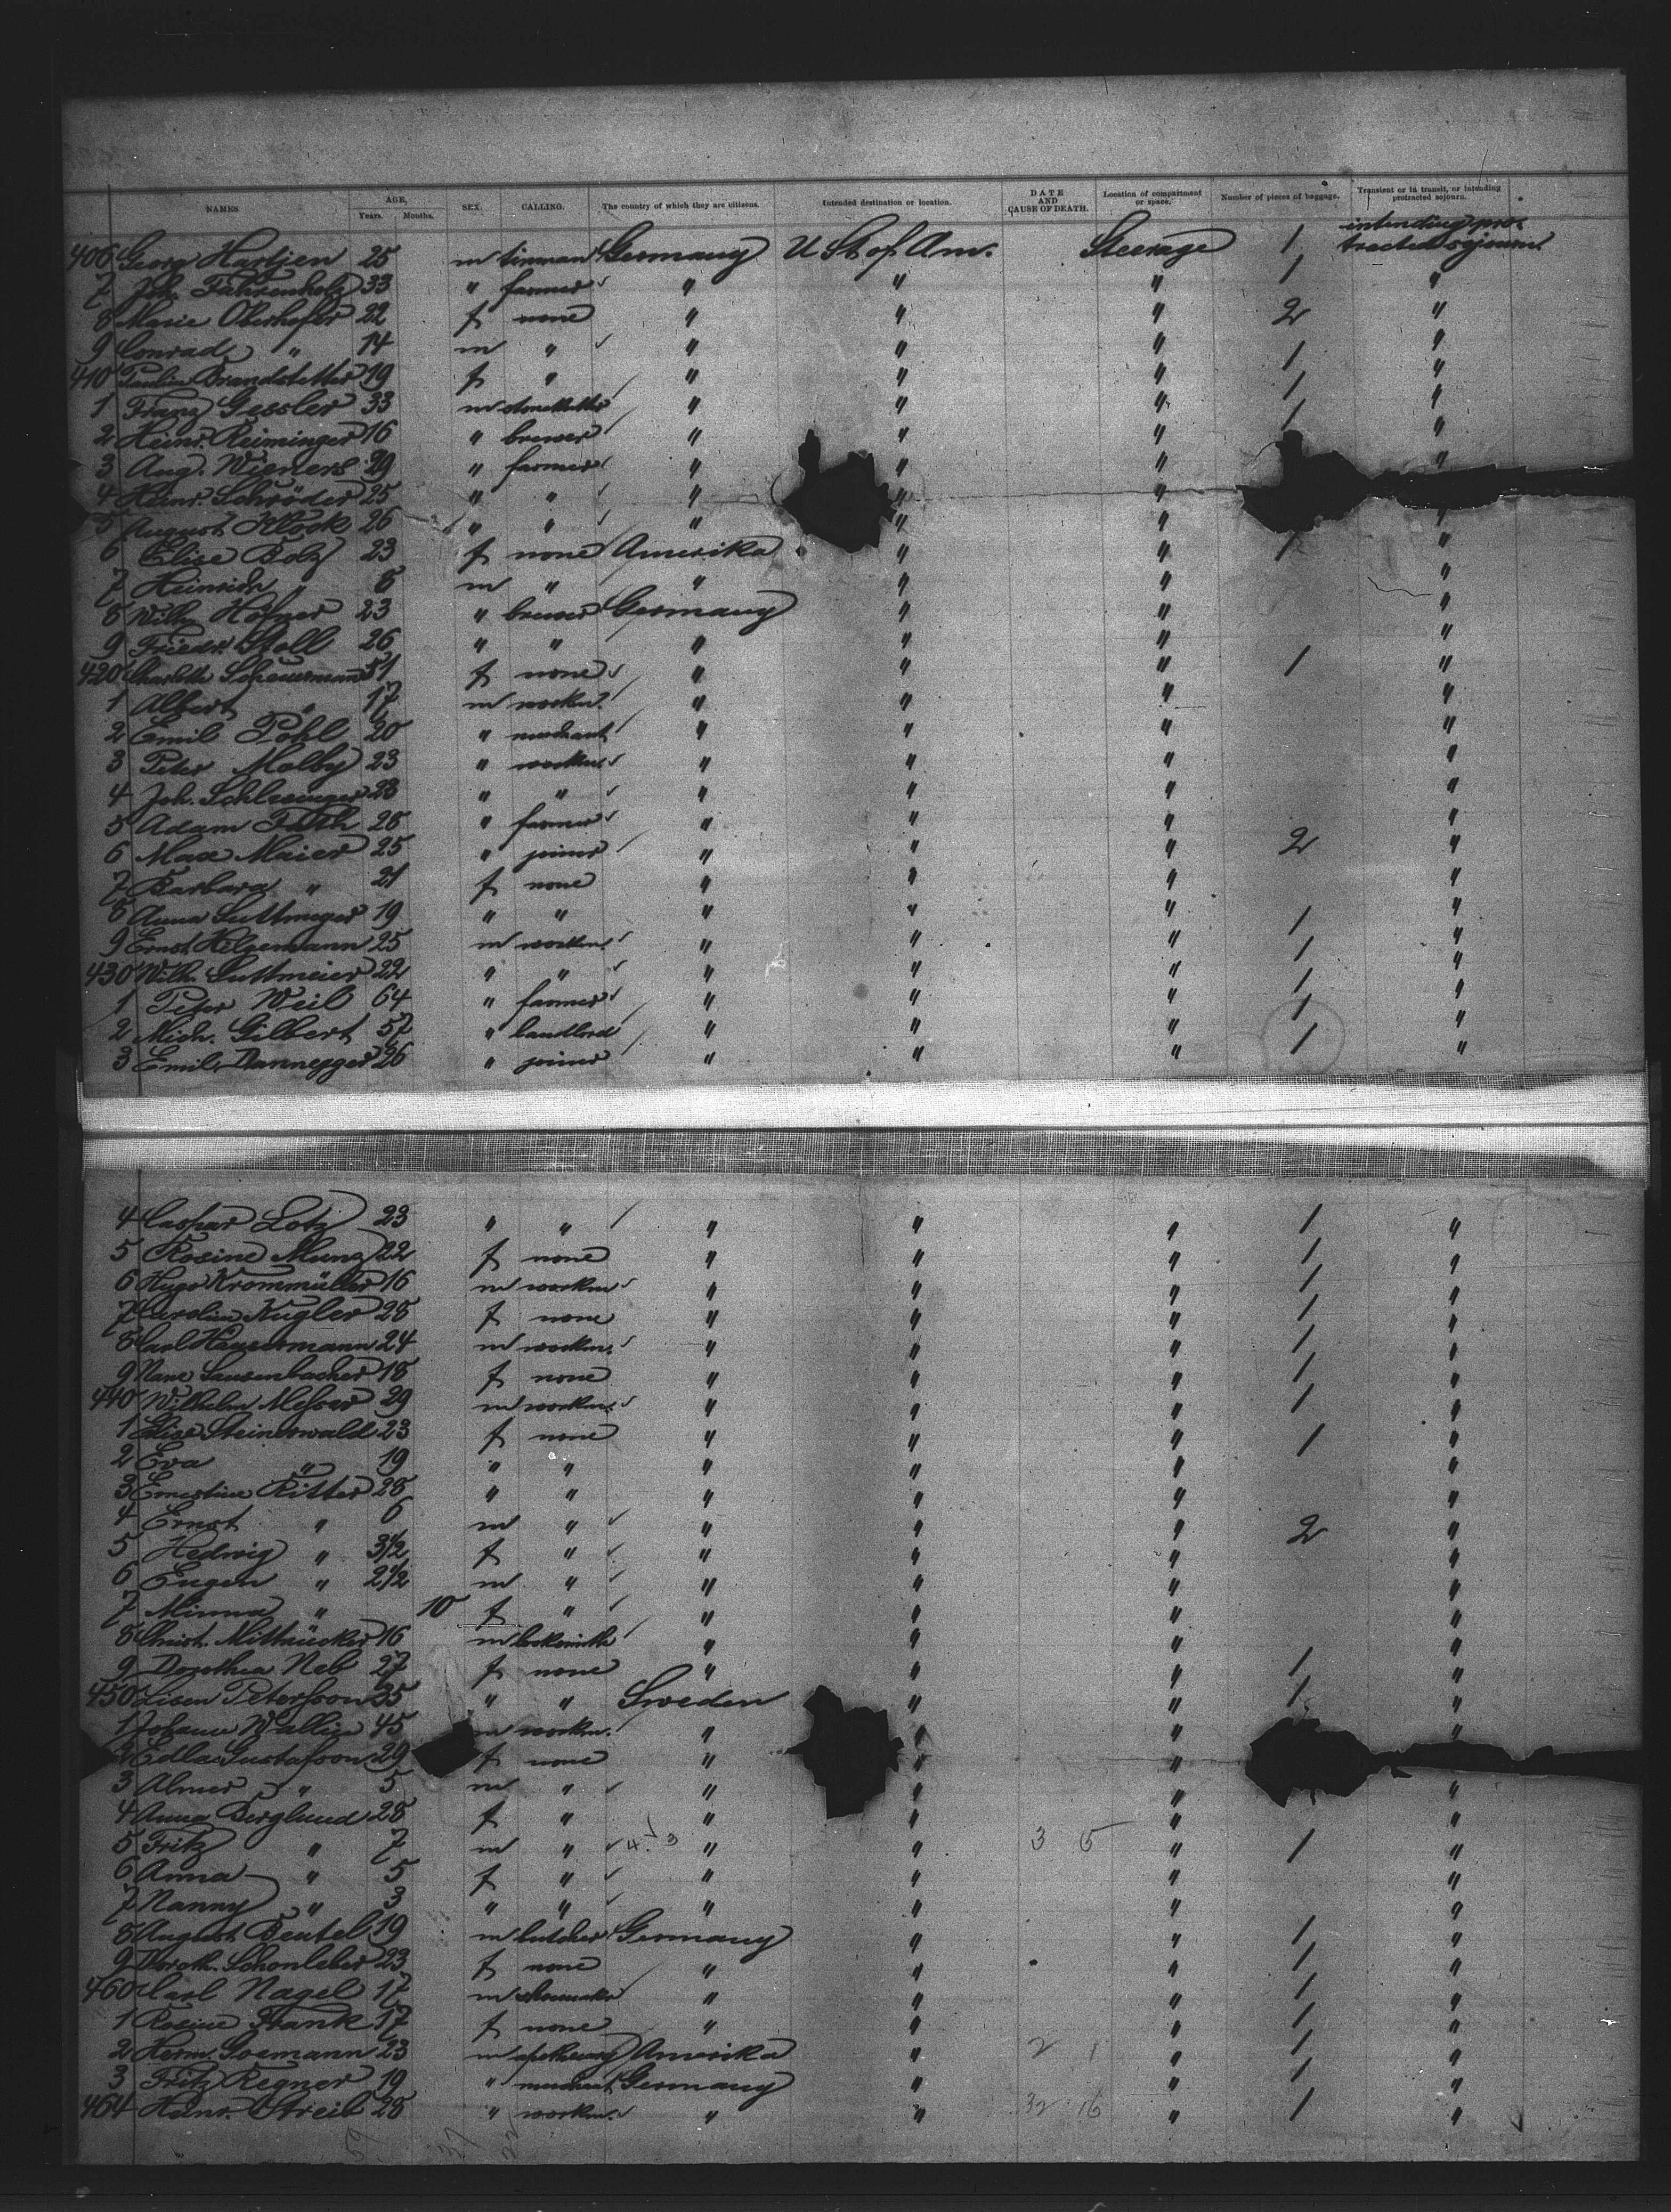 NAMES AGE, Years. Months. SEX. CALLING. The country of which they are citizens. Intended destination or location. DATE AND CAUSE OF DEATH. Location of compartment or space. Number of pieces of baggage. Transient or in transit, or intending protracted sojourn.
406 Georg Hartjen 25 m tinman Germany U St of Am. Steerage 1 intending protracted sojourn
7 Joh. Fahrenholz 33 " farmer " " " 1 "
8 Marie Oberhofer 22 f none " " " 2 "
9 Conrad " 14 m " " " " "
410 Pauline Brandstetter 19 f " " " " 1 "
1 Franz Gessler 33 m " " " 1 "
2 Heinr. Reiminger 16 " brewer " " " 1 "
3 Aug. Wieners 29 " farmer " " " "
4 Heinr. Schröder 25 " " " " "
5 August Klock 26 " " " " " "
6 Elise Bolz 23 f none Amerika " " 1 "
7 Heinrich " 6 m " " " " "
8 Wilh. Höfner 23 " brewer Germany " " "
9 Friedr. Stoll 26 " " " " " "
420 Charlotte Scheuermann 51 f none " " " 1 "
1 Albert " 17 m workm. " " " "
2 Emil Pohl 20 " merchant " " " "
3 Peter Molby 23 " workm. " " " "
4 Joh. Schlesinger 28 " " " " " "
5 Adam Fath 28 " farmer " " " "
6 Max Maier 25 " joiner " " " 2 "
7 Barbara " 21 f none " " " "
8 Anna Suttmeyer 19 " " " " " 1 "
9 Ernst Helgemann 25 m workm. " " " 1 "
430 Wilh. Suttmeier 22 " " " " " 1 "
1 Peter Weil 64 " farmer " " " 1 "
2 Mich. Gilbert 57 " landlord " " " 1 "
3 Emil Dannegger 26 " joiner " " " "
4 Caspar Lotz 23 " " " " " 1 "
5 Rosine Munz 22 f none " " " 1 "
6 Hugo Krommüller 16 m workm " " " 1 "
7 Carolina Kugler 28 f none " " " 1 "
8 Carl Haussermann 24 m workm. " " " 1 "
9 Nane Sausenbacher 18 f none " " " 1 "
440 Wilhelm Messer 29 m workm. " " " 1 "
1 Elise Steinerwald 23 f none " " " 1 "
2 Eva " 19 " " " " " "
3 Ernestine Ritter 28 " " " " " "
4 Ernst " 6 m " " " " 2 "
5 Hedwig " 3 1/2 f " " " " "
6 Eugen " 2 1/2 m " " " " "
7 Minna " 10 f " " " " "
8 Christ. Mittnücker 16 m locksmith " " " "
9 Dorothea Neb 27 f none " " " 1 "
450 Lisen Petersson 35 " " Sweden " " 1 "
1 Johann Wallin 45 m workm. " " " "
2 Edla Gustafson 29 f none " " "
3 Almer " 5 m " " " " "
4 Anna Berglund 28 f " " " " "
5 Fritz " 7 m " 4 3 " " 3 5 " 1 "
6 Anna " 5 f " " " " "
7 Nanny " 3 " " " " " "
8 August Beutel 19 m butcher Germany " " 1 "
9 Doroth. Schonleber 23 f none " " " 1 "
460 Carl Nagel 17 m shoemaker " " " 1 "
1 Rosine Frank 17 f none " " " 1 "
2 Herm. Soemann 23 m apothecary Amerika " 2 1 " 1 "
3 Fritz Regner 19 " merchant Germany " " 1 "
464 Heinr. Streib 28 " workm. " " 32 16 " 1 "
59 37 22